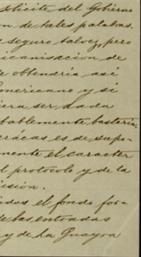 solicite del Gobierno
on de tales palabras.
seguro talvez, pero
icanisación de
e obtendría así
mericano y si
iera ser dada
tablemente bastaría,
rácas es de supo-
mente el caracter
l protocolo y de la
isión.
idos el fondo for
de las entradas
y de la Guayra